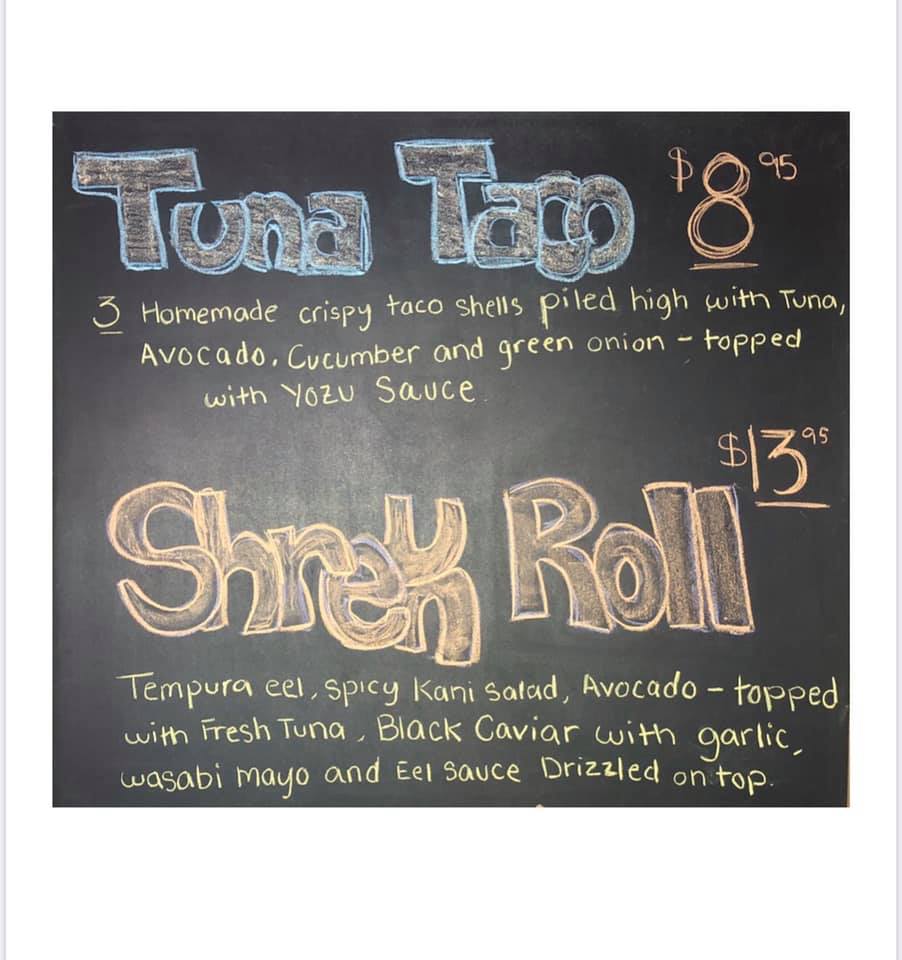 Tuna Taco $8.95
3 Homemade crispy taco shells piled high with Tuna,
Avocado, Cucumber and green onion - topped
with Yozu Sauce.
$13.95
Shrek Roll
Tempura eel, spicy Kani Salad, Avocado - topped
with Fresh Tuna, Black Caviar with garlic,
wasabi mayo and Eel Sauce Drizzled on top.